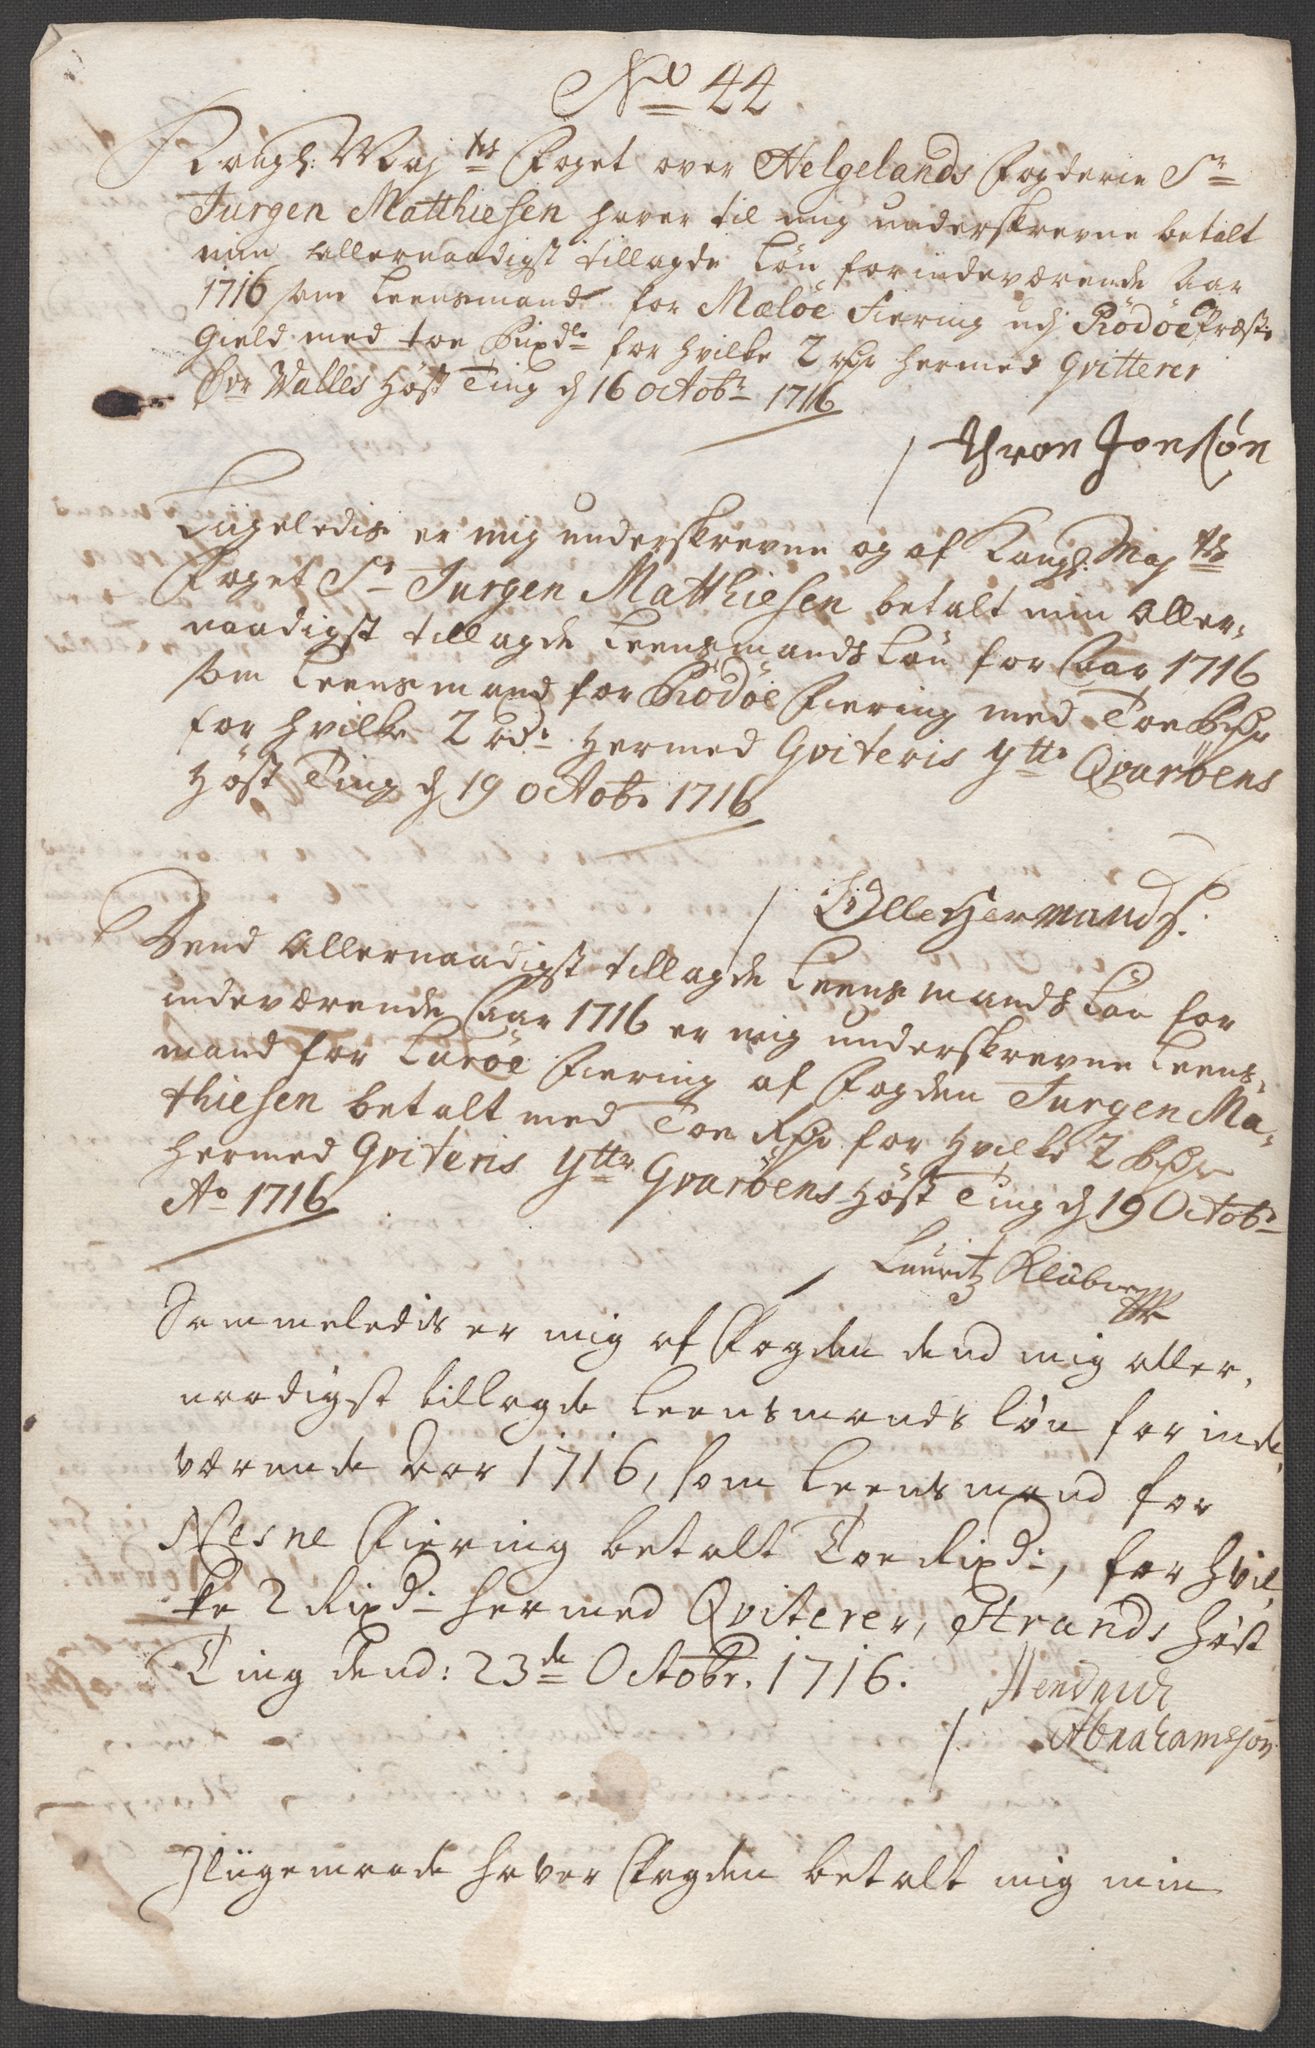 No 44
Kongl: Maj.ts Foget over Helgelands Fogderie Sr
Jurgen Matthiesen haver til mig underskrevne betalt
min allernaadigst tillagde Løn for indeværende Aar
1716 som Leensmand for Meløe Fiering udj Rödöe Præste
Gield med toe Rixdlr for hvilke 2 rdr hermed qvitterer
Valles Høst Ting d 16 Octobr 1716
Jonsøn
Liigeledis er mig underskrevne og af Kongl: Maj.ts
Foget Sr Jurgen Matthiesen betalt min Aller-
naadigst tillagde Leensmands Løn for Aar 1716
som Leensmand for Rödöe Fiering med Toe Rdr
for hvilke 2 rdr hermed Qviteris Ytte Qvaröens
Høst Ting d 19 Octobr 1716
Olle Hermands.
Dend Allernaadigst tillagde Leensmands Løn for
indeværende Aar 1716 er mig underskrevne Leens-
mand for Luröe Fiering af Fogden Jurgen Ma-
thiesen betalt med Toe Rdr for Hvilke 2 Rdr
hermed Qviteris Ytte Qvaröens Høst Ting d 19 Octobr
Ao 1716
Lauritz
Sammeledis er mig af Fogden dend mig aller-
naadigst tillagde Leensmands løn for inde-
værende Aar 1716, som Leensmand for
Nesne Fiering betalt Toe Rixdr, for hvil-
ke 2 Rixdr hermed Qviterer, Strands Høst
Ting dend: 23de Octobr. 1716.
Hendrich
Abrahamssøn
Iliigemaade haver Fogden betalt mig min